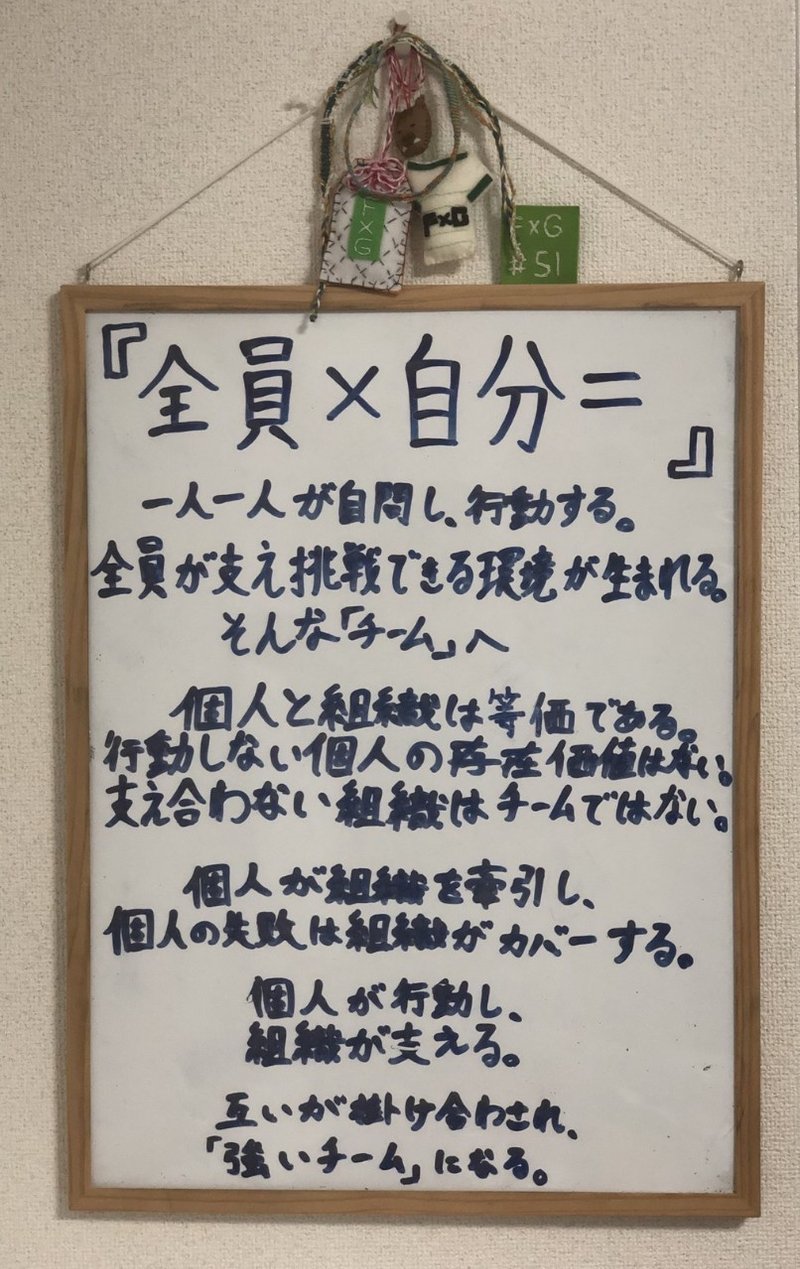 F×G
F×G
F×G
#51
『全員×自分=
』
一人一人が自問し、行動する。
全員が支え挑戦できる環境が生まれる。
そんな「チーム」へ
個人と組織は等価である。
行動しない個人の存在価値はない。
支え合わない組織はチームではない。
個人が組織を牽引し、
個人の失敗は組織がカバーする。
個人が行動し、
組織が支える。
互いが掛け合わされ、
「強いチーム」になる。